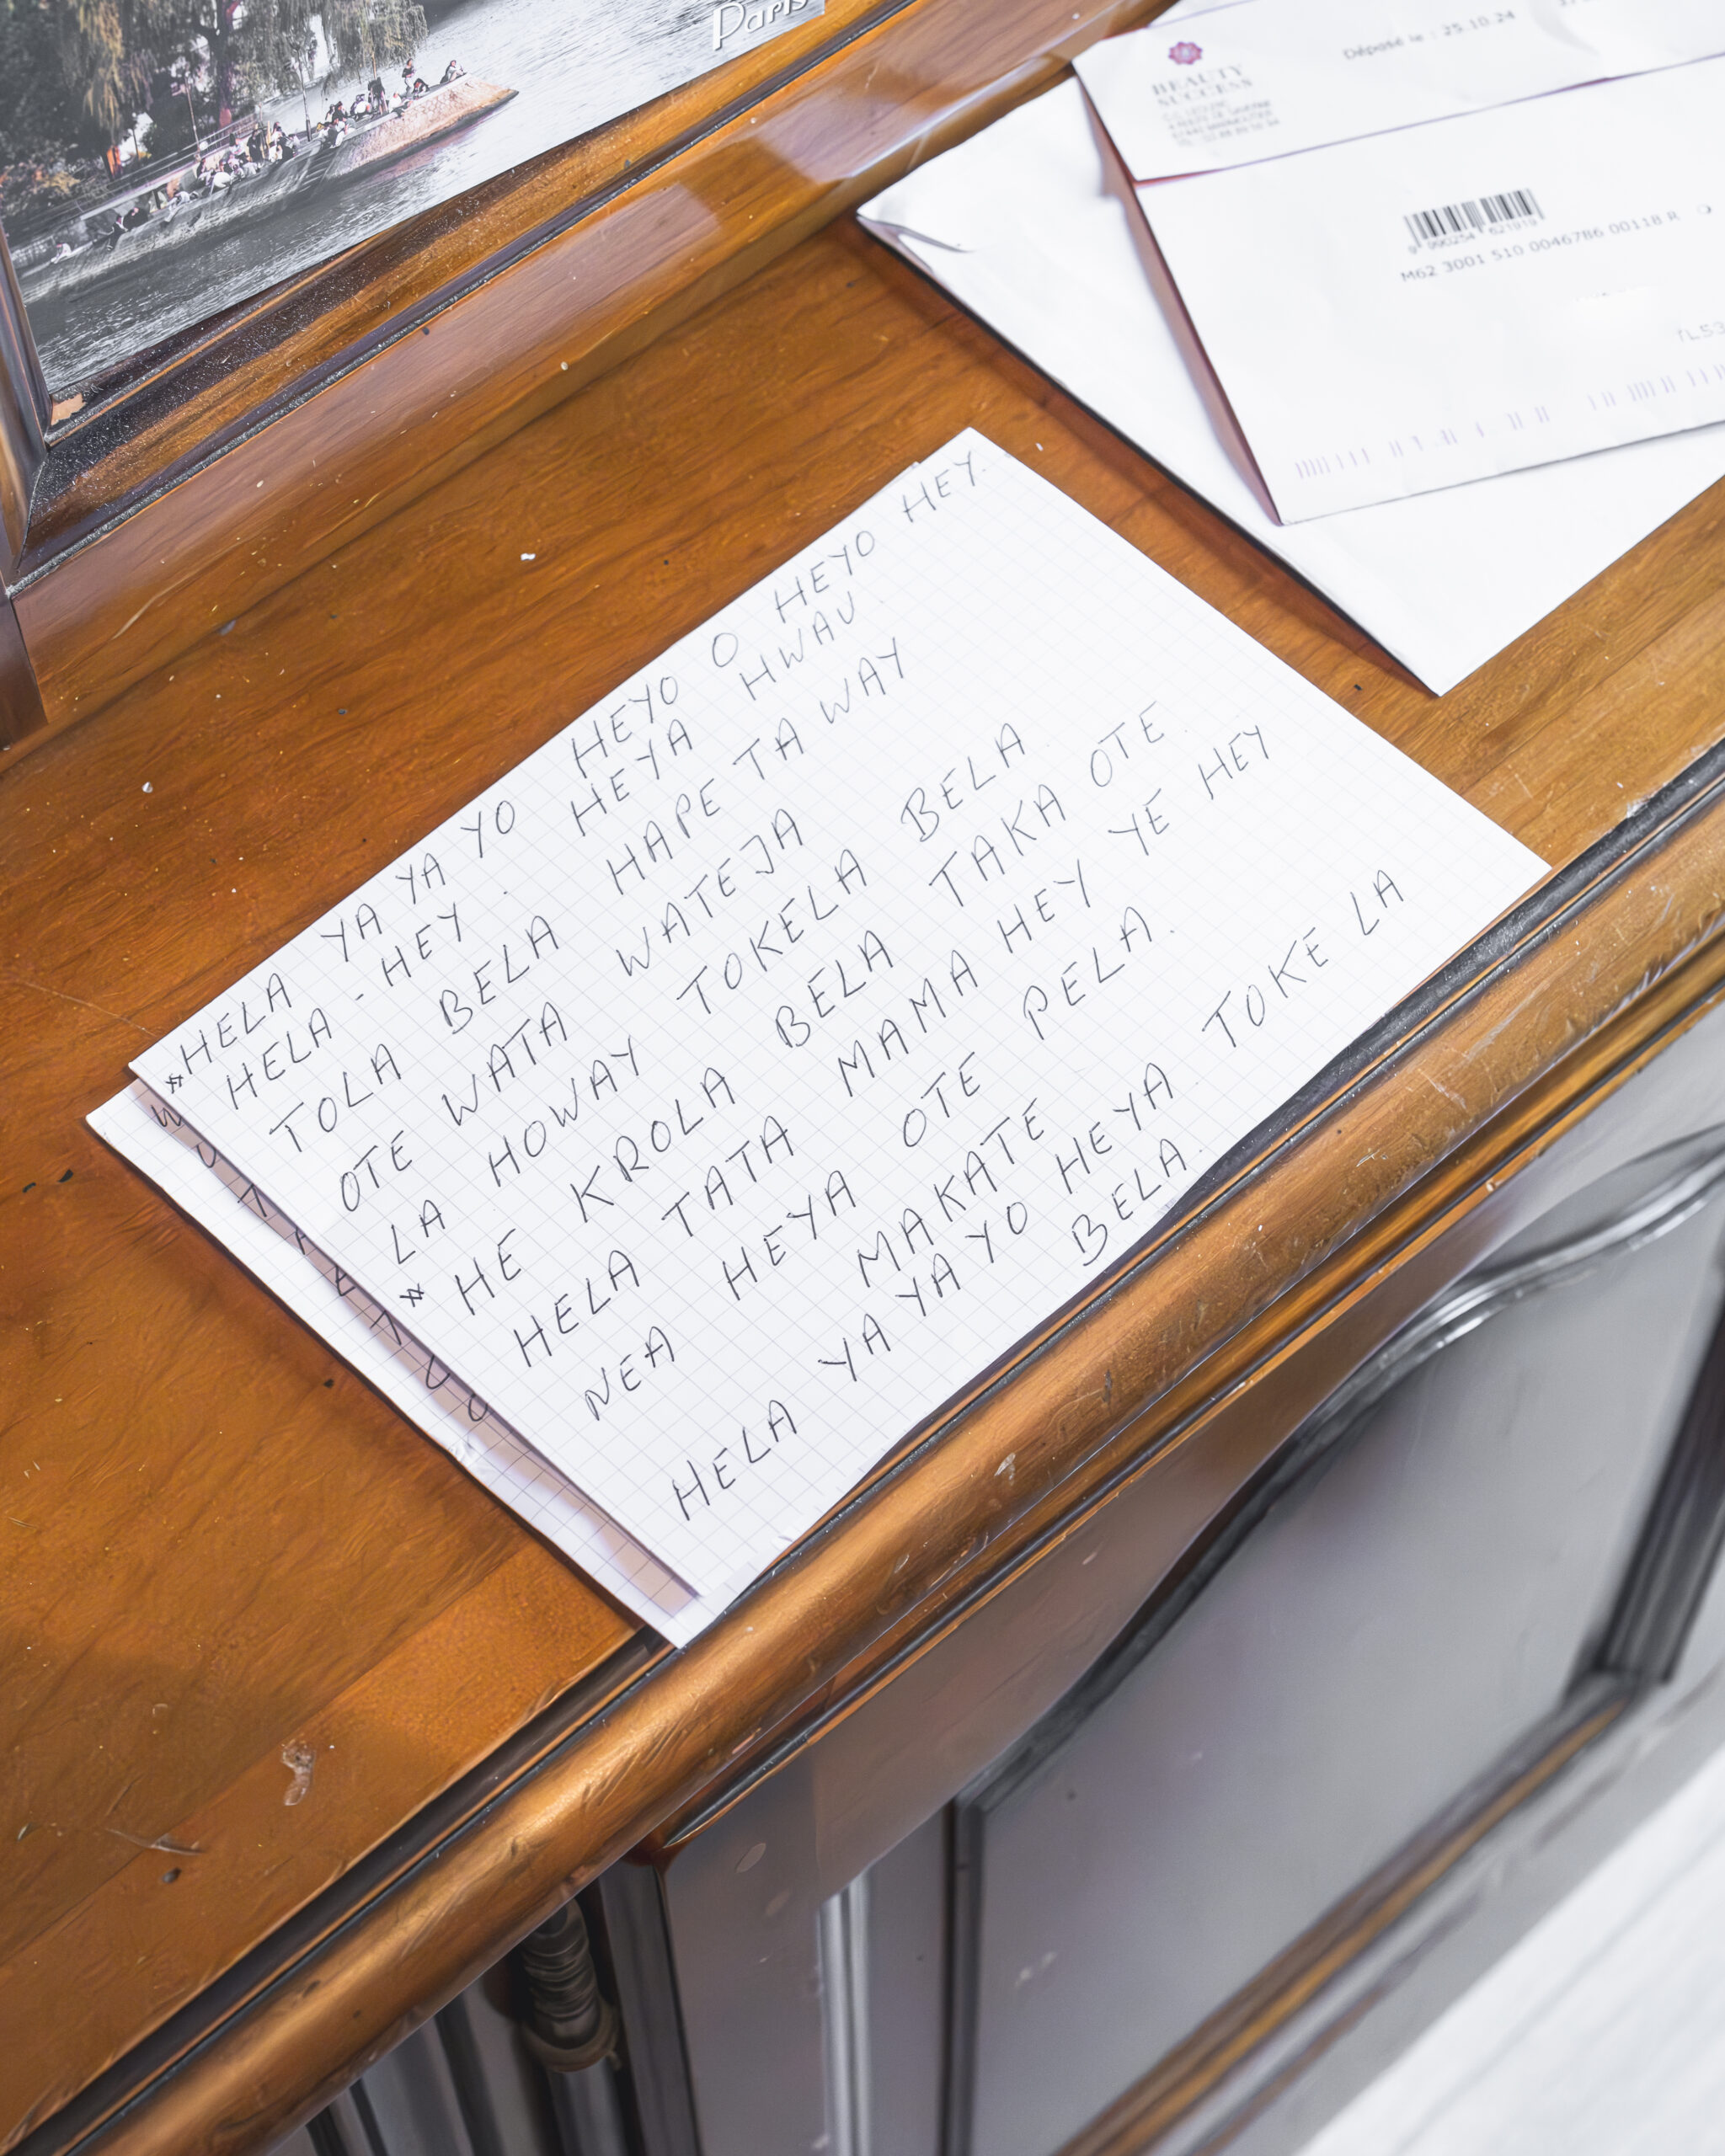 Paris
BEAUTY
SUCCESS
Déposé le : 25.10.24
M62 3001 510 0046786 00118 R
*HELA YA YA YO HEYO O HEYO HEY.
HELA - HEY. HEYA HWAU.
TOLA BELA HAPE TA WAY
OTE WATA WATEJA
LA HOWAY TOKELA BELA
* HE KROLA BELA TAKA OTE.
HELA TATA MAMA HEY YE HEY
NEA HEYA OTE PELA.
MAKATE
HELA YA YA YO HEYA TOKE LA
BELA.